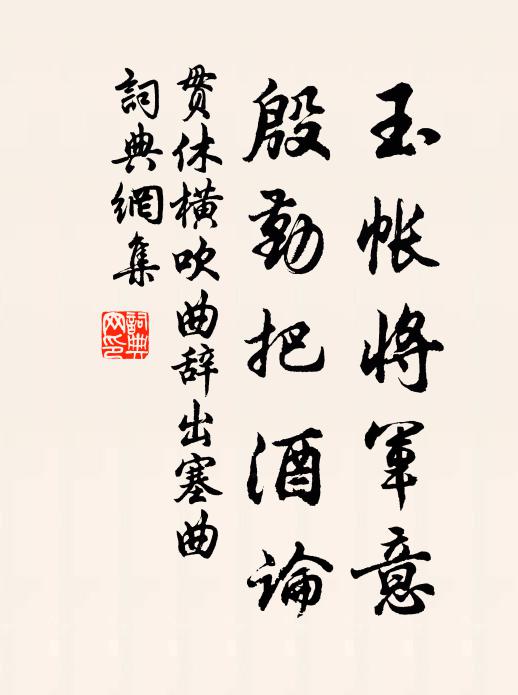 玉帐将军意
殷勤把酒论
贯休横吹曲辞出塞曲
词典网集
词典网印